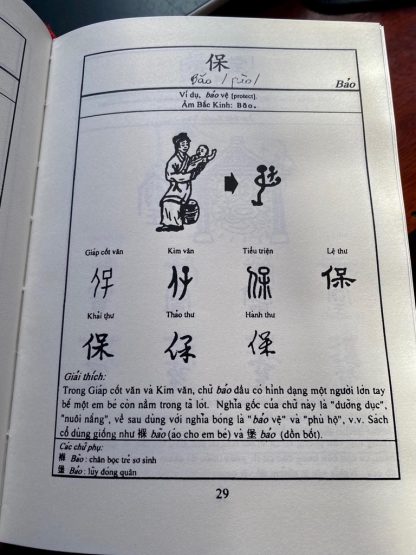 保
Bǎo
Bảo
Ví dụ, bảo vệ [protect].
Âm Bắc Kinh: Bǎo.
Giáp cốt văn Kim văn Tiểu triện Lệ thư
保 保 保 保
Khải thư Thảo thư Hành thư
保 保 保
Giải thích:
Trong Giáp cốt văn và Kim văn, chữ bảo đầu có hình dạng một người lớn tay
bế một em bé còn nằm trong tã lót. Nghĩa gốc của chữ này là "dưỡng dục",
"nuôi nấng", về sau dùng với nghĩa bóng là "bảo vệ" và "phù hộ", v.v. Sách
cổ dùng giống như 褓 bảo (áo cho em bé) và 堡 bảo (đồn bốt).
Các chữ phụ:
褓 Bảo: chăn bọc trẻ sơ sinh
堡 Bảo: lũy đóng quân
29